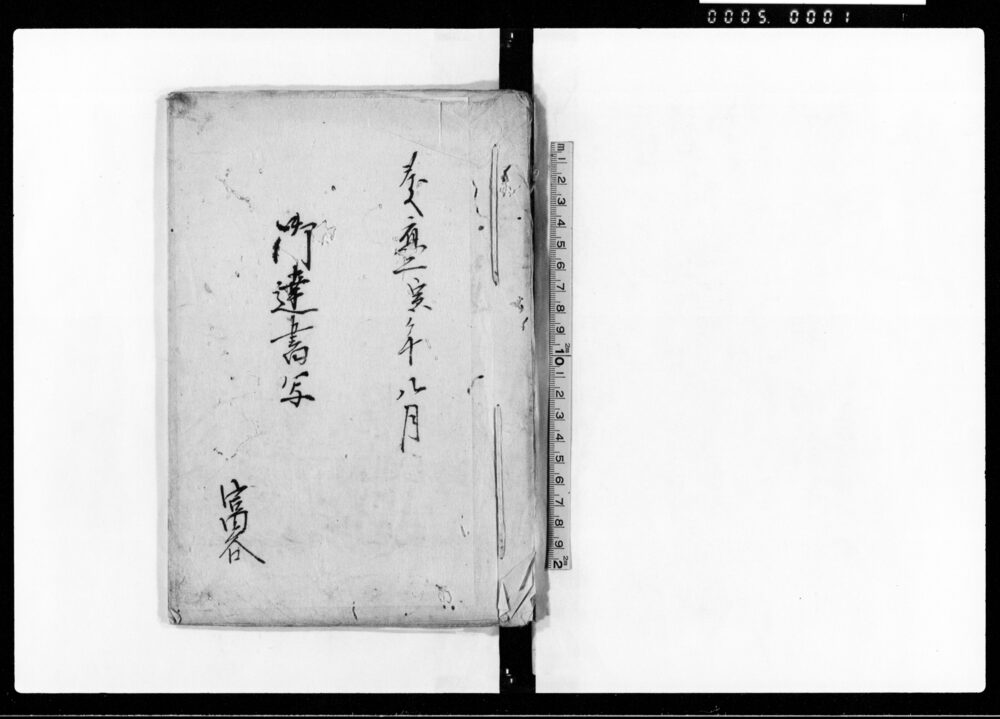 0005. 0001
慶應二寅年八月
御達書写
富谷
m 1 2 3 4 5 6 7 8 9 10 1 2 3 4 5 6 7 8 9 2